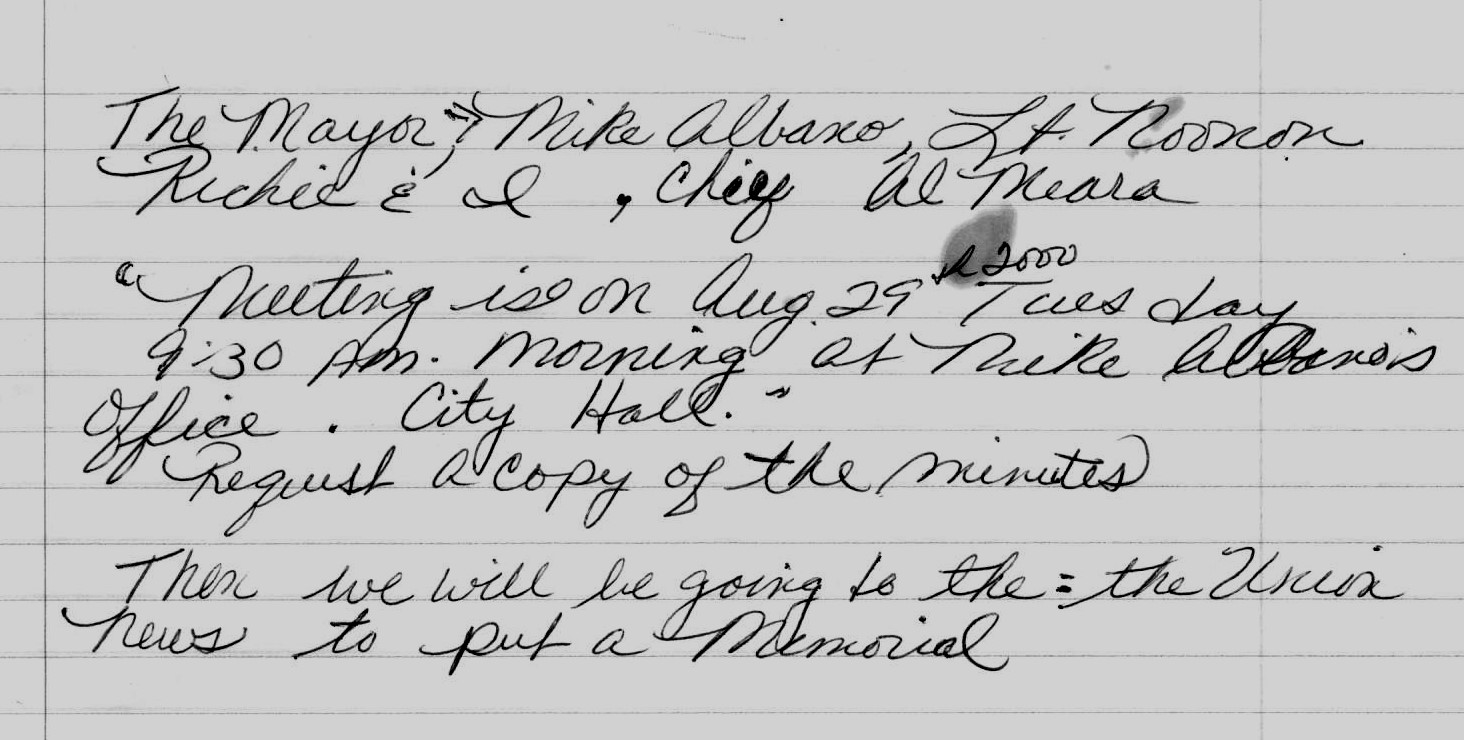 The Mayor, Mike Albano, Lt. Noonon
Richie & I, Chief Al Meara
"Meeting is on Aug. 29 2000 Tuesday
9:30 Am. Morning at Mike Albano's
Office. City Hall."
Request a copy of the minutes
Then we will be going to the = the Union
News to put a Memorial